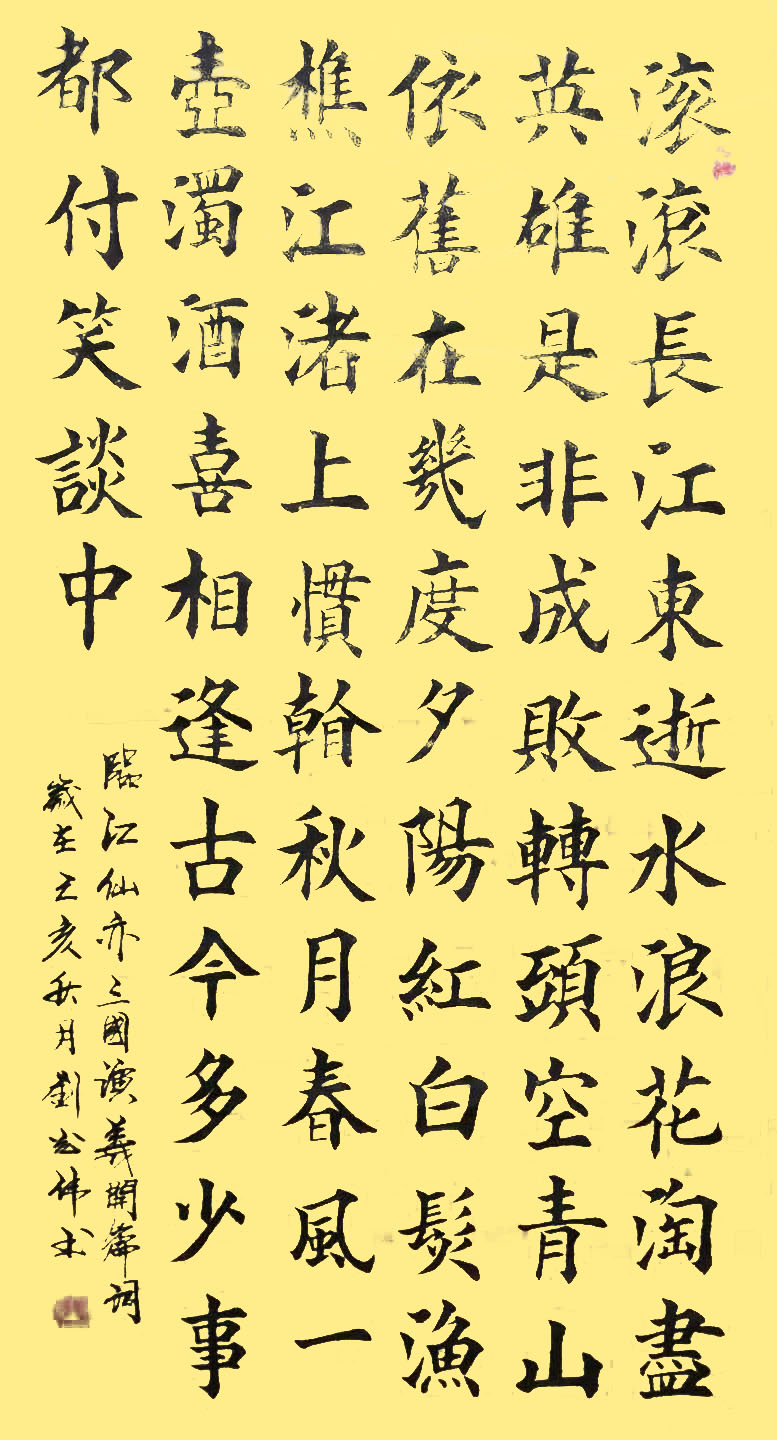 滚滾長江東逝水浪花淘盡
英雄是非成敗轉頭空青山
依舊在幾度夕陽紅白髮漁
樵江渚上慣看秋月春風一
壺濁酒喜相逢古今多少事
都付笑談中
臨江仙亦三國演義開篇詞
歲在亥秋月劉伟书